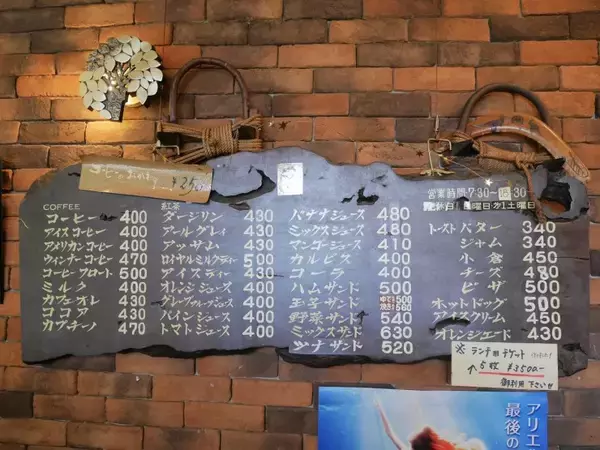 コーヒーのおかわり ¥250
COFFEE
コーヒー 400
アイスコーヒー 400
アメリカンコーヒー 400
ウィンナーコーヒー 470
コーヒーフロート 500
ミルク 400
カフェオレ 430
ココア 430
カプチーノ 470
紅茶
ダージリン 430
アールグレイ 430
アッサム 430
ロイヤルミルクティー 500
アイスティー 430
オレンジジュース 400
グレープフルーツジュース 400
パインジュース 400
トマトジュース 400
バナナジュース 480
ミックスジュース 480
マンゴージュース 410
カルピス 400
コーラ 400
ハムサンド 500
玉子サンド ゆで500
焼き560
野菜サンド 540
ミックスサンド 630
ツナサンド 520
営業時間・7:30-16:30
定休日 日曜日・第1土曜日
トーストバター 340
ジャム 340
小倉 450
チーズ 480
ピザ 500
ホットドッグ 500
アイスクリーム 450
オレンジエード 430
※ ランチ用チケット
5枚 ¥3500-
御利用下さいませ
アリエ
最後の